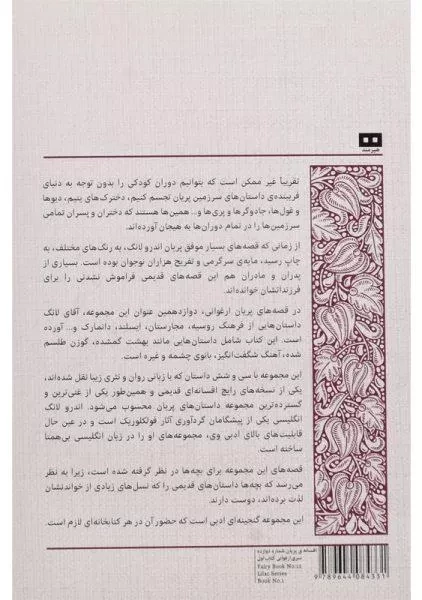 هیرمند
تقریباً غیر ممکن است که بتوانیم دوران کودکی را بدون توجه به دنیای
فریبنده‌ی داستان‌های سرزمین پریان تجسم کنیم، دخترک‌های یتیم، دیوها
و غول‌ها، جادوگرها و پری‌ها و... همین‌ها هستند که دختران و پسران تمامی
سرزمین‌ها را در تمام دوران‌ها به هیجان آورده‌اند.
از زمانی که قصه‌های بسیار موفق پریان اندرو لانگ، به رنگ‌های مختلف، به
چاپ رسید، مایه‌ی سرگرمی و تفریح هزاران نوجوان بوده است. بسیاری از
پدران و مادران هم این قصه‌های قدیمی فراموش نشدنی را برای
فرزندانشان خوانده‌اند.
در قصه‌های پریان ارغوانی، دوازدهمین عنوان این مجموعه، آقای لانگ
داستان‌هایی از فرهنگ روسیه، مجارستان، ایسلند، دانمارک و... آورده
است. این کتاب شامل داستان‌هایی مانند بهشت گمشده، گوزن طلسم
شده، آهنگ شگفت‌انگیز، بانوی چشمه و غیره است.
این مجموعه با سی و شش داستان که با زبانی روان و نثری زیبا نقل شده‌اند،
یکی از نسخه‌های رایج افسانه‌ای قدیمی و همین‌طور یکی از غنی‌ترین و
گسترده‌ترین مجموعه داستان‌های پریان محسوب می‌شود. اندرو لانگ
انگلیسی یکی از پیشگامان گردآوری آثار فولکلوریک است و در عین حال
قابلیت‌های بالای ادبی وی، مجموعه‌های او را در زبان انگلیسی بی‌همتا
ساخته است.
قصه‌های این مجموعه برای بچه‌ها در نظر گرفته شده است، زیرا به نظر
می‌رسد که بچه‌ها داستان‌های قدیمی را که نسل‌های زیادی از خواندنشان
لذت برده‌اند، دوست دارند.
این مجموعه گنجینه‌ای ادبی است که حضور آن در هر کتابخانه‌ای لازم است.
افسانه‌ی پریان شماره دوازده
سری ارغوانی کتاب اول
Fairy Book No:12
Lilac Series
Book No.1
9789644084331